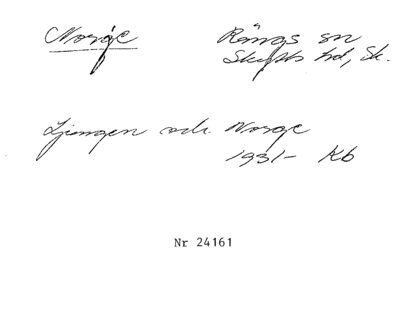 Norge Rängs sn
Skytts hd, Sk.
Ljungen och Norge
1931- Kb
Nr 24161